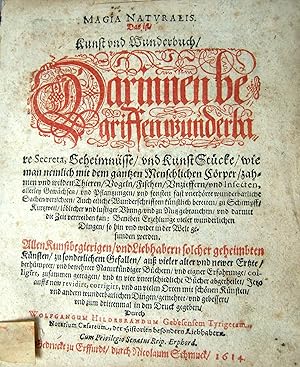 MAGIA NATURALIS.
Das ist/
Kunst vnd Wunderbuch/
Darinnen be
griffen wunderba
re Secreta, Geheimnüsse/ vnd KunstStücke/ wie
man nemlich mit dem gantzen Menschlichen Cörper/ zah-
men vnd wilden Thieren/ Vogeln/ Fischen/ Vnzieffern vnd Insecten,
allerley Gewächsen/ vnd Pflantzungen/ vnd sonsten fast vnerhörte wunderbarliche
Sachen verrichten/ Auch etliche Wunderschrifften künstlich bereiten/ zu Schimpff/
Kurtzweil/ löblicher vnd lustiger Vbung/ vnd zu Nutz gebrauchen/ vnd damit
die Zeit vertreiben kan: Beneben Erzehlunge vieler wunderlichen
Dingen/ so hin vnd wider in der Welt ge-
funden werden.
Allen Kunstbegierigen/ vnd Liebhabern solcher geheimbten
Künsten/ zu sonderlichem Gefallen/ auß vieler alter vnd newer Ertzte/
berhümpter/ vnd bewehrter Naturkündiger Büchern/ vnd eigner Erfahrunge/ col-
ligirt, zusammen getragen/ vnd in vier vnterschiedliche Bücher abgetheilet/ Jetzo
auffs new revidirt, corrigirt, vnd an vielen Orten mit schönen Künsten/
vnd andern wunderbarlichen Dingen/ gemehret/ vnd gebessert/
vnd zum drittenmal in den Druck gegeben/
Durch
WOLFGANGUM HILDEBRANDUM Gebesensem Tyrigetam,
Notarium Cæsareum, der Historien besondern Liebhabern.
Cum Privilegio Senatus Reip. Erphord.
Gedruckt zu Erffurdt/ durch Nicolaum Schmuck/ 1614.